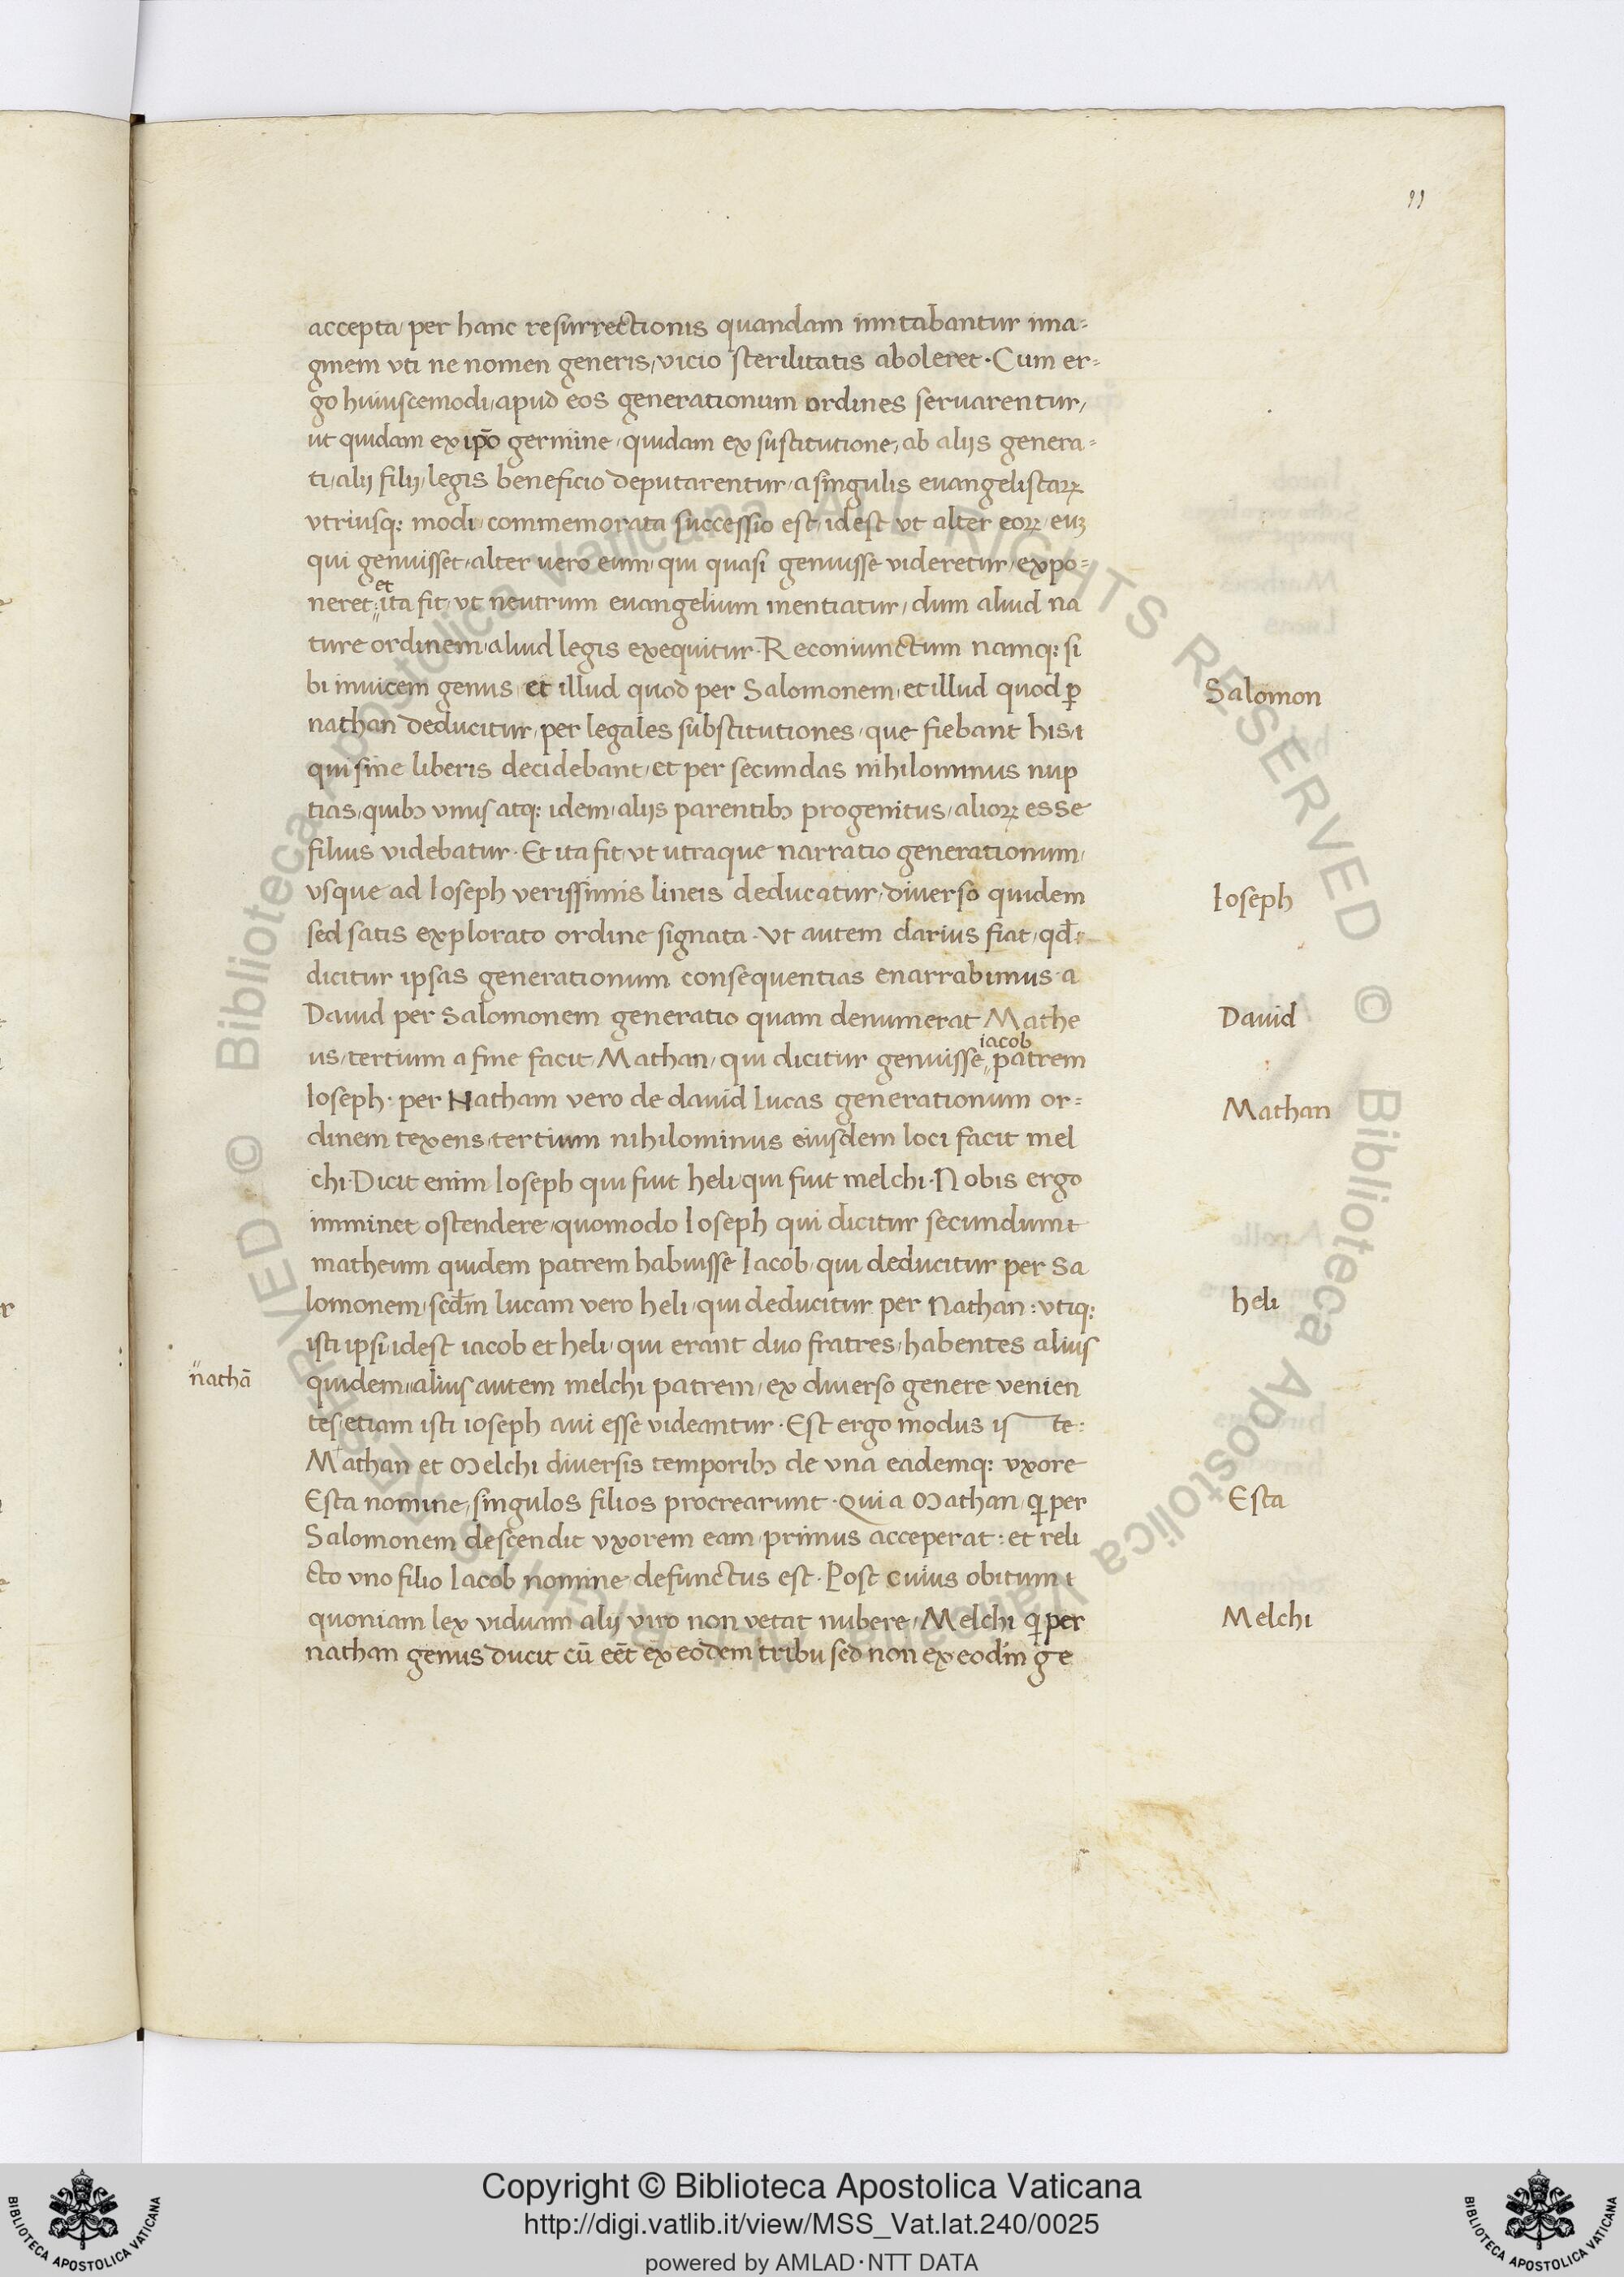 11
accepta, per hanc resurrectionis quandam imitabantur ima-
ginem vti ne nomen generis, vicio sterilitatis aboleret. Cum er-
go huiuscemodi, apud eos generationum ordines seruarentur,
ut quidam ex ip̄o germine, quidam ex sustitutione, ab aliis genera-
ti, alij filij, legis beneficio deputarentur, a singulis euangelistaꝝ
vtriusq: modi, commemorata successio est, idest vt alter eoꝝ, euꝫ
qui genuisset, alter uero eum, qui quasi genuisse videretur, expo-
neret. et ita fit, vt neutrum euangelium mentiatur, dum aliud na
ture ordinem, aliud legis exequitur. Reconiunctum namq: si
bi inuicem genus, et illud quod per Salomonem, et illud quod ꝑ
nathan deducitur, per legales substitutiones, que fiebant his, ı
qui sine liberis decidebant, et per secundas nihilominus nup
tias, quibꝫ vnus atq: idem, aliis parentibꝫ progenitus, alioꝝ esse
filius videbatur. Et ita fit, vt utraque narratio generationum,
vsque ad Ioseph verissimis lineis deducatur, diuerso quidem
sed satis explorato ordine signata. Vt autem clarius fiat, qđ
dicitur ipsas generationum consequentias enarrabimus. a
Dauid per Salomonem generatio quam denumerat Mathe
us, tertium a fine facit, Mathan, qui dicitur genuisse iacob patrem
Ioseph. per Natham vero de dauid Lucas generationum or-
dinem texens, tertium nihilominus eiusdem loci facit mel
chi. Dicit enim Ioseph qui fuit heli, qui fuit melchi. Nobis ergo
imminet ostendere, quomodo Ioseph qui dicitur secundum ı
matheum quidem patrem habuisse Iacob, qui deducitur per Sa
lomonem, scđm lucam vero heli, qui deducitur per Nathan: vtiq:
isti ipsi, idest iacob et heli, qui erant duo fratres, habentes alius
quidem, alius autem melchi patrem, ex diuerso genere venien
tes, etiam isti ioseph aui esse videantur. Est ergo modus is te:
Mathan et Melchi diuersis temporibꝫ de vna eademq: vxore
Esta nomine, singulos filios procrearunt. Quia Mathan, q̇ per
Salomonem descendit vxorem eam, primus acceperat: et reli
cto vno filio Iacob nomine defunctus est. Post cuius obitum ı
quoniam lex viduam alij viro non vetat nubere, Melchi q̇ per
nathan genus ducit cū eēt ex eodem tribu sed non ex eodm̄ ge
Salomon
Ioseph
Dauid
Mathan
heli
nathā
Esta
Melchi
© Biblioteca Apostolica Vaticana ALL RIGHTS RESERVED
Copyright © Biblioteca Apostolica Vaticana
http://digi.vatlib.it/view/MSS_Vat.lat.240/0025
powered by AMLAD·NTT DATA
BIBLIOTECA APOSTOLICA VATICANA
BIBLIOTECA APOSTOLICA VATICANA